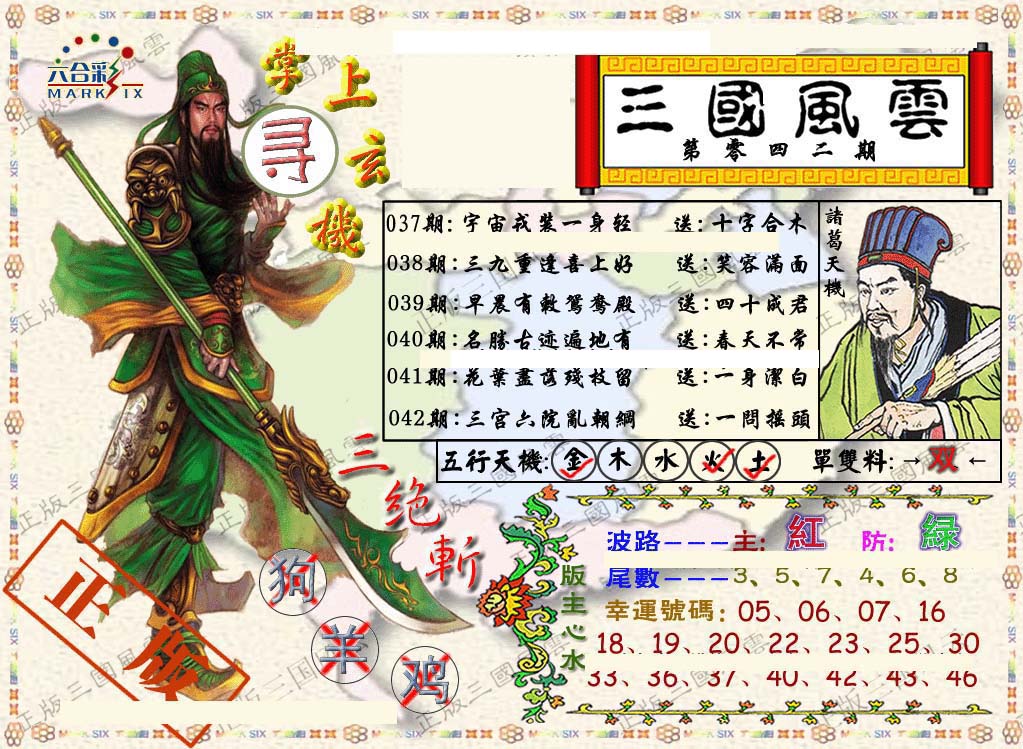 六合彩
MARK SIX
掌上玄機
寻
三國風雲
第零四二期
037期:宇宙戎裝一身轻 送:十字合木
038期:三九重逢喜上好 送:笑容滿面
039期:早晨有敕鴛鴦殿 送:四十成君
040期:名勝古迹遍地有 送:春天不常
041期:花葉盡落殘枝留 送:一身潔白
042期:三宫六院亂朝綱 送:一問摇頭
諸葛天機
五行天機:金木水火土 單雙料:→双←
三絕斬
狗
羊
鸡
正版
版主心水
波路---主:紅 防:緑
尾數---3、5、7、4、6、8
幸運號碼:05、06、07、16
18、19、20、22、23、25、30
33、36、37、40、42、43、46
正版三國風雲